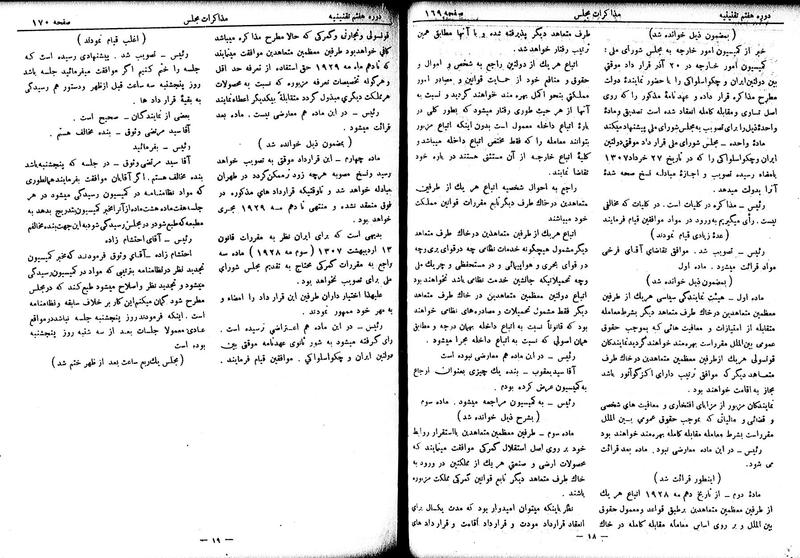 دوره هفتم تقنینیه
مذاکرات مجلس
صفحه ۱۶۹
(بمضمون ذیل خوانده شد)
خبر از کمیسیون امور خارجه به مجلس شورای ملی:
کمیسیون امور خارجه در ۲۰ آذر قرار داد موقتی
بین دولتین ایران و چکواسلواکی را با حضور نمایندهٔ دولت
مطرح مذاکره قرار داده و عهدنامهٔ مذکور را که روی
اصل تساوی و مقابله کامله انعقاد شده است تصدیق و مادهٔ
واحدهٔ ذیل را برای تصویب به مجلس شورای ملی پیشنهاد میکند
مادهٔ واحده – مجلس شورای ملی قرارداد موقتی دولتین
ایران و چکواسلواکی را که در تاریخ ۲۷ خرداد ۱۳۰۷
بامضاء رسیده تصویب و اجازهٔ مبادلهٔ نسخ صحه شدهٔ
آنرا بدولت میدهد.
رئیس – مذاکره در کلیات است. در کلیات که مخالفی
نیست. رأی میگیریم بورود در مواد موافقین قیام فرمایند
(عدهٔ زیادی قیام نمودند)
رئیس – تصویب شد. موافق تقاضای آقای فرخی
مواد قرائت میشود. ماده اول
(بمضمون ذیل خوانده شد)
ماده اول – هیئت نمایندگی سیاسی هریك از طرفین
متعاهدین در خاك طرف متعاهد دیگر بشرط معامله
متقابله از امتیازات و معافیت هائی که بموجب حقوق
عمومی بین الملل مقرر است بهره مند خواهند گردید نمایندگان
قونسولی هریك از طرفین متعاهدین در خاك طرف
متعاهد دیگر که موافق ترتیب دارای اکزکواتور باشد
مجاز به اقامت خواهند بود.
نمایندگان مزبور از مزایای افتخاری و معافیت های شخصی
و قضائی و مالیاتی که بموجب حقوق عمومی بین الملل
مقرر است بشرط معامله مقابله کامله بهره مند خواهند بود
رئیس – در این ماده معارضی نبود. ماده بعد قرائت
می شود.
(اینطور قرائت شد)
مادهٔ دوم – از تاریخ دهم مه ۱۹۲۸ اتباع هر یك
از طرفین معظمین متعاهدین برطبق قواعد و معمول حقوق
بین الملل و بر روی اساس معامله مقابله کامله در خاك
طرف متعاهد دیگر پذیرفته شده و با آنها مطابق همین
ترتیب رفتار خواهد شد.
اتباع هریك از دولتین راجع به شخص و اموال و
حقوق و منافع خود از حمایت قوانین و مصادر امور
مملکتی بنحو اکمل بهره مند خواهند گردید و نسبت به
آنها از هر حیث طوری رفتار میشود که بطور کلی در
بارهٔ اتباع داخله معمول است بدون اینکه اتباع مزبور
بتوانند معامله را که فقط مختص اتباع داخله میباشد و
کلیهٔ اتباع خارجه از آن مستثنی هستند در باره خود
تقاضا نمایند.
راجع به احوال شخصیه اتباع هر یك از طرفین
متعاهدین در خاك طرف دیگر تابع مقررات قوانین مملکت
خود میباشند
اتباع هریك از طرفین متعاهدین در خاك طرف متعاهد
دیگر مشمول هیچگونه خدمات نظامی چه در قوای بری و چه
در قوای بحری و هواپیمائی و در مستحفظی و چریك ملی
و چه تحمیلاتیکه جانشین خدمت نظامی باشد نخواهند بود
اتباع دولتین معظمین متعاهدین در خاك طرف متعاهد
دیگر فقط مشمول تحمیلات و مصادره های نظامی خواهند
بود که قانوناً نسبت به اتباع داخله بهمان درجه و مطابق
همان اصولی که نسبت به اتباع داخله مجرا میشود.
رئیس – در این ماده هم معارضی نبوده است
آقا سید یعقوب – بنده یك چیزی بعنوان ارجاع
به کمیسیون عرض کرده بودم.
رئیس – به کمیسیون مراجعه میشود. ماده سوم
(بشرح ذیل خوانده شد)
ماده سوم – طرفین معظمین متعاهدین باستقرار روابط
خود بر روی اصل استقلال گمرکی موافقت مینمایند که
محصولات ارضی و صنعتی هر یك از مملکتین در ورود به
خاك طرف متعاهد دیگر تابع قوانین گمرکی مملکت مزبور
باشند.
نظر باینکه میتوان امیدوار بود که مدت یکسال برای
انعقاد قرارداد مودت و قرارداد اقامت و قرارداد های
– ۱۸ –
صفحه ۱۷۰
مذاکرات مجلس
دوره هفتم تقنینیه
قونسولی و تجارتی و گمرکی که حالا مطرح مذاکره میباشد
کافی خواهد بود طرفین معظمین متعاهدین موافقت مینمایند
که تا دهم ماه مه ۱۹۲۹ حق استفاده از تعرفه حد اقل
و هرگونه تخصیصات تعرفه مزبوره که نسبت به محصولات
هر مملکت دیگری مبذول گردد متقابلاً بیکدیگر اعطاء نمایند
رئیس – در این ماده هم معارضی نیست. ماده بعد
قرائت میشود.
(بمضمون ذیل خوانده شد)
ماده چهارم – این قرارداد موقتی به تصویب خواهد
رسید و نسخ مصوبه هرچه زود تر ممکن گردد در طهران
مبادله خواهد شد و تا وقتیکه قراردادهای مذکوره در
فوق منعقد نشده و منتهی تا دهم مه ۱۹۲۹ مجری
خواهد بود.
بدیهی است که برای ایران نظر به مقررات قانون
۱۳ اردیبهشت ۱۳۰۷ (سوم مه ۱۹۲۸) ماده سه
راجع به مقررات گمرکی محتاج به تقدیم مجلس شورای
ملی برای تصویب نخواهد بود.
علیهذا اختیار داران طرفین این قرار داد را امضاء و
به مهر خود ممهور نمودند.
رئیس – در این ماده هم اعتراضی نرسیده است.
رأی گرفته میشود به شور ثانوی عهدنامه موقتی بین
دولتین ایران و چکواسلواکی. موافقین قیام فرمایند.
(اغلب قیام نمودند)
رئیس – تصویب شد. پیشنهادی رسیده است که
جلسه را ختم کنیم اگر موافقت میفرمائید جلسه باشد
روز پنجشنبه سه ساعت قبل از ظهر و دستور هم رسیدگی
به بقیهٔ قرار داد ها.
بعضی از نمایندگان – صحیح است.
آقا سید مرتضی وثوق – بنده مخالف هستم.
رئیس – بفرمائید
آقا سید مرتضی وثوق – در جلسه که پنجشنبه باشد
بنده مخالف هستم. اگر آقایان موافقت بفرمایند همانطوری
که مواد نظامنامه در کمیسیون رسیدگی میشود در هر
جلسه هفت ماده هشت ماده از آنرا مخبر کمیسیون بتدریج بدهد به
مطبعه که طبع شود در مجلس رسیدگی شود به این جهت بنده مخالفم
رئیس – آقای احتشام زاده
احتشام زاده – آقای وثوق فرمودند که مخبر کمیسیون
تجدید نظر در نظامنامه بترتیبی که مواد در کمیسیون رسیدگی
میشود و تجدید نظر و اصلاح میشود طبع کنند که در مجلس
مطرح شود گمان میکنم این کار بر خلاف سابقه و نظامنامه
است. اینکه فرمودند روز پنجشنبه جلسه نباشد در مواقع
عادی معمولا جلسات بعد از سه شنبه روز پنجشنبه
بوده است
(مجلس یکربع ساعت بعد از ظهر ختم شد)
– ۱۹ –